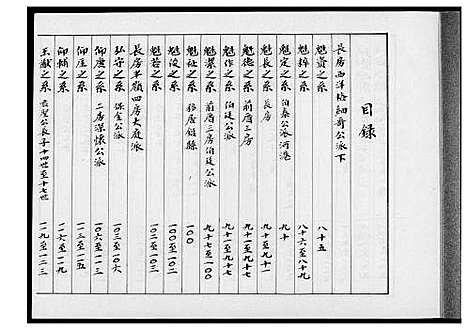 目録
長房西洋陸細哥公派下
魁資之系 八十五
魁錞之系 八十六至八十九
魁定之系 伯泰公派河港 九十
魁長之系 長房 九十至九十一
魁德之系 前厝三房 九十一至九十七
魁作之系 伯廷公派 九十一至九十七
魁潔之系 前厝三房伯廷公派 九十七至一00
魁征之系 移居 一00
魁浚之系 一00至一0二
魁若之系 一0二至一0三
長房半嶺四房大庭派
弘守之系 保全公派 一0三至一0六
仰唐之系 二房深懷公派 一0六至一一三
仰崖之系 一一三至一一五
仰輔之系 一一六至一一九
玉猷之系 長子十四世至十七世 一一九至一二三